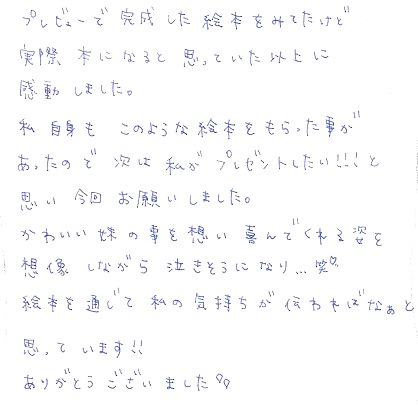 プレビューで完成した絵本をみてたけど
実際本になると思っていた以上に
感動しました。
私自身もこのような絵本をもらった事が
あったので次は私がプレゼントしたい!!!と
思い今回お願いしました。
かわいい妹の事を想い喜んでくれる姿を
想像しながら泣きそうになり...笑♡
絵本を通じて私の気持ちが伝わればなぁと
思っています!!
ありがとうございました♡♡